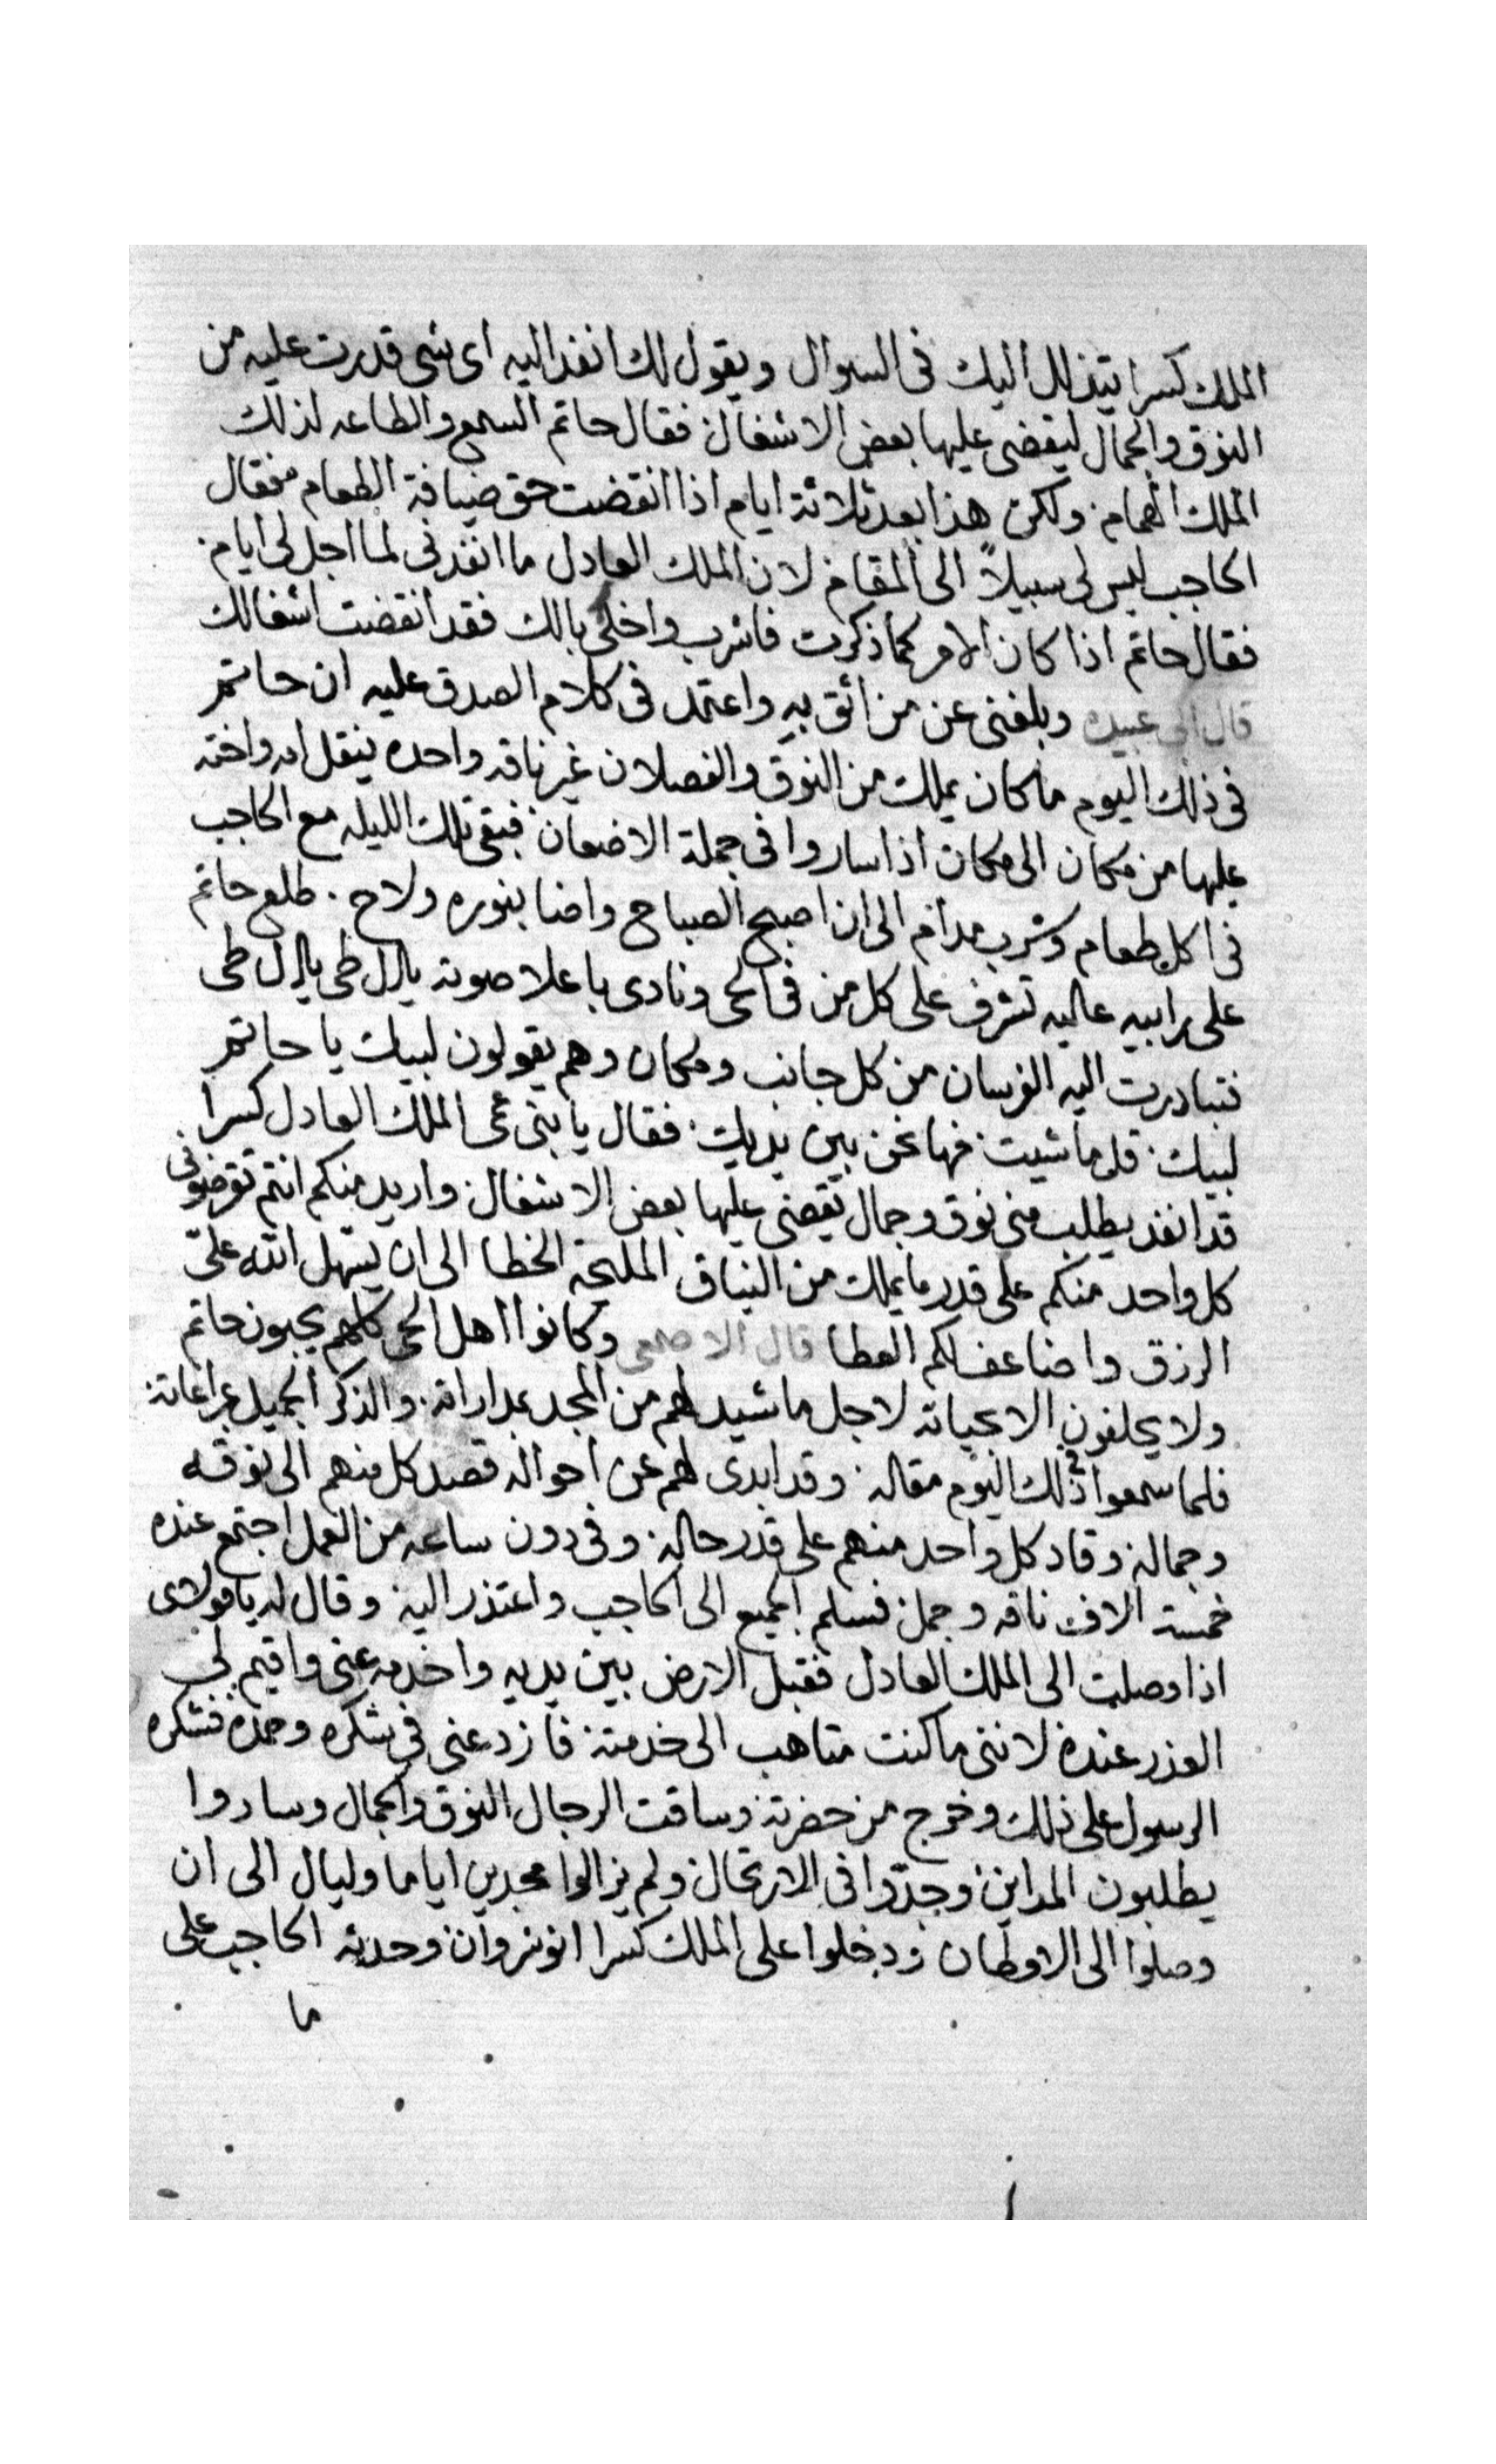 الملك كسرا يتذلل اليك فى السوال ويقول لك انفد اليه اى شى قدرت عليه من
النوق والجمال ليقضى عليها بعض الاشغال فقال حاتم السمع والطاعه لذلك
الملك الهمام ولكن هذا بعد ثلاثة ايام اذا انقضت حق ضيافة الطعام فقال
الحاجب ليس لى سبيلاً الى المقام لان الملك العادل ما انفدنى لما اجل لى ايام
فقال حاتم اذا كان الامر كما ذكرت فاشرب واخلى بالك فقد انقضت اشغالك
قال ابى عبيده وبلغنى عن من اثق به واعتمد فى كلام الصدق عليه ان حاتم
فى ذلك اليوم ما كان يملك من النوق والفصلان غير ناقه واحده ينقل امه واخته
عليها من مكان الى مكان اذا ساروا فى جملة الاضعان فبقى تلك الليله مع الحاجب
فى اكل طعام وشرب مدام الى ان اصبح الصباح واضا بنوره ولاح طلع حاتم
على رابيه عاليه تشرف على كل من فى الحى ونادى باعلا صوته يالل طى يالل طى
فتبادرت اليه الفرسان من كل جانب ومكان وهم يقولون لبيك يا حاتم
لبيك قل ما شيت فها نحن بين يديك فقال يا بنى عمى الملك العادل كسرا
قد انفد يطلب منى نوق وجمال يقضى عليها بعض الاشغال واريد منكم انتم تقرضونى
كل واحد منكم على قدر ما يملك من النياق المليحة الخطا الى ان يسهل الله علىّ
الرزق واضاعف لكم العطا قال الاصمعى وكانوا اهل الحى كلهم يحبون حاتم
ولا يحلفون الا بحياته لاجل ما شيد لهم من المجد بمداراته والذكر الجميل بمراعاته
فلما سمعوا فى ذلك اليوم مقاله وقد ابدى لهم عن احواله قصد كل منهم الى نوقه
وجماله وقاد كل واحد منهم على قدر حاله وفى دون ساعه من العمل اجتمع عنده
خمسة الاف ناقه وجمل فسلم الجميع الى الحاجب واعتذر اليه وقال له يا مولاى
اذا وصلت الى الملك العادل فقبل الارض بين يديه واخدمه عنى واقيم لى
العذر عنده لاننى ما كنت متاهب الى خدمته فازد عنى فى شكره وحمده فشكره
الرسول على ذلك وخرج من حضرته وساقت الرجال النوق والجمال وساروا
يطلبون المداين وجدّوا فى الارتحال ولم يزالوا مجدين اياما وليال الى ان
وصلوا الى الاوطان ودخلوا على الملك كسرا انوشروان وحدثه الحاجب على
ما